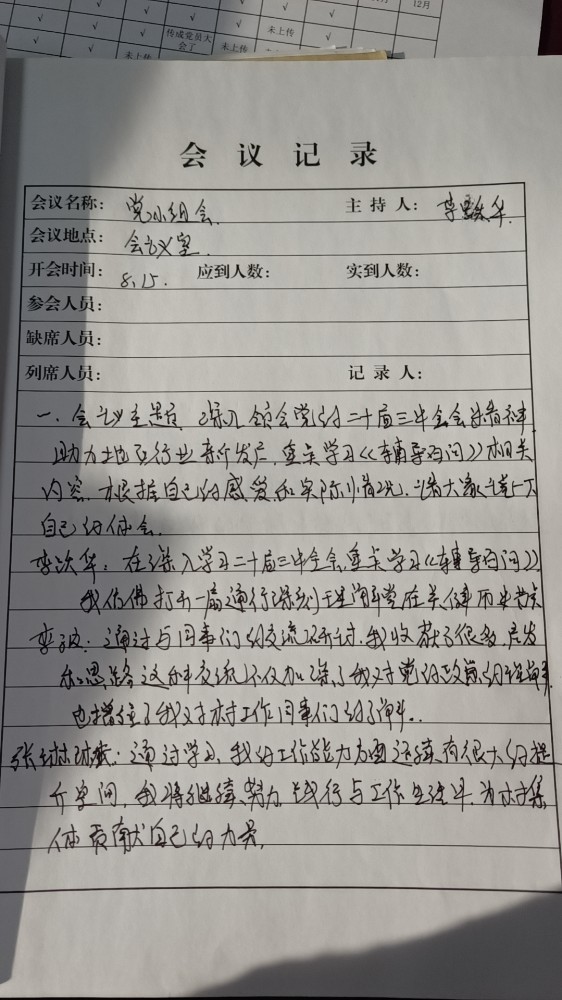 12月
√ √ √ √
√ √ √ 未上传 √
√ √ 传成党员大会了 √ √
√ 未上传 未上传
会 议 记 录
会议名称： 党小组会. 主 持 人： 李 华.
会议地点： 会议室.
开会时间： 8.15. 应到人数： 实到人数：
参会人员：
缺席人员：
列席人员： 记 录 人：
一、会议主题：深入领会党的二十届三中全会精神
助力 行业 发展，重点学习《辅导百问》相关
内容，根据自己的感受和实际情况，请大家谈一下
自己的体会.
李 华：在深入学习二十届三中全会重点学习《辅导百问》
我仿佛打开一扇通往深刻理解党在关键历史节点
李 ：通过与同事们的交流研讨，我收获了很多启发
和思路 这种交流不仅加深了我对党的政策的理解
也增强了我对 工作同事们的了解..
张 ：通过学习，我的工作能力方面还有很大的提
升空间，我将继续努力 践行与工作生活中，为 集
体贡献自己的力量.